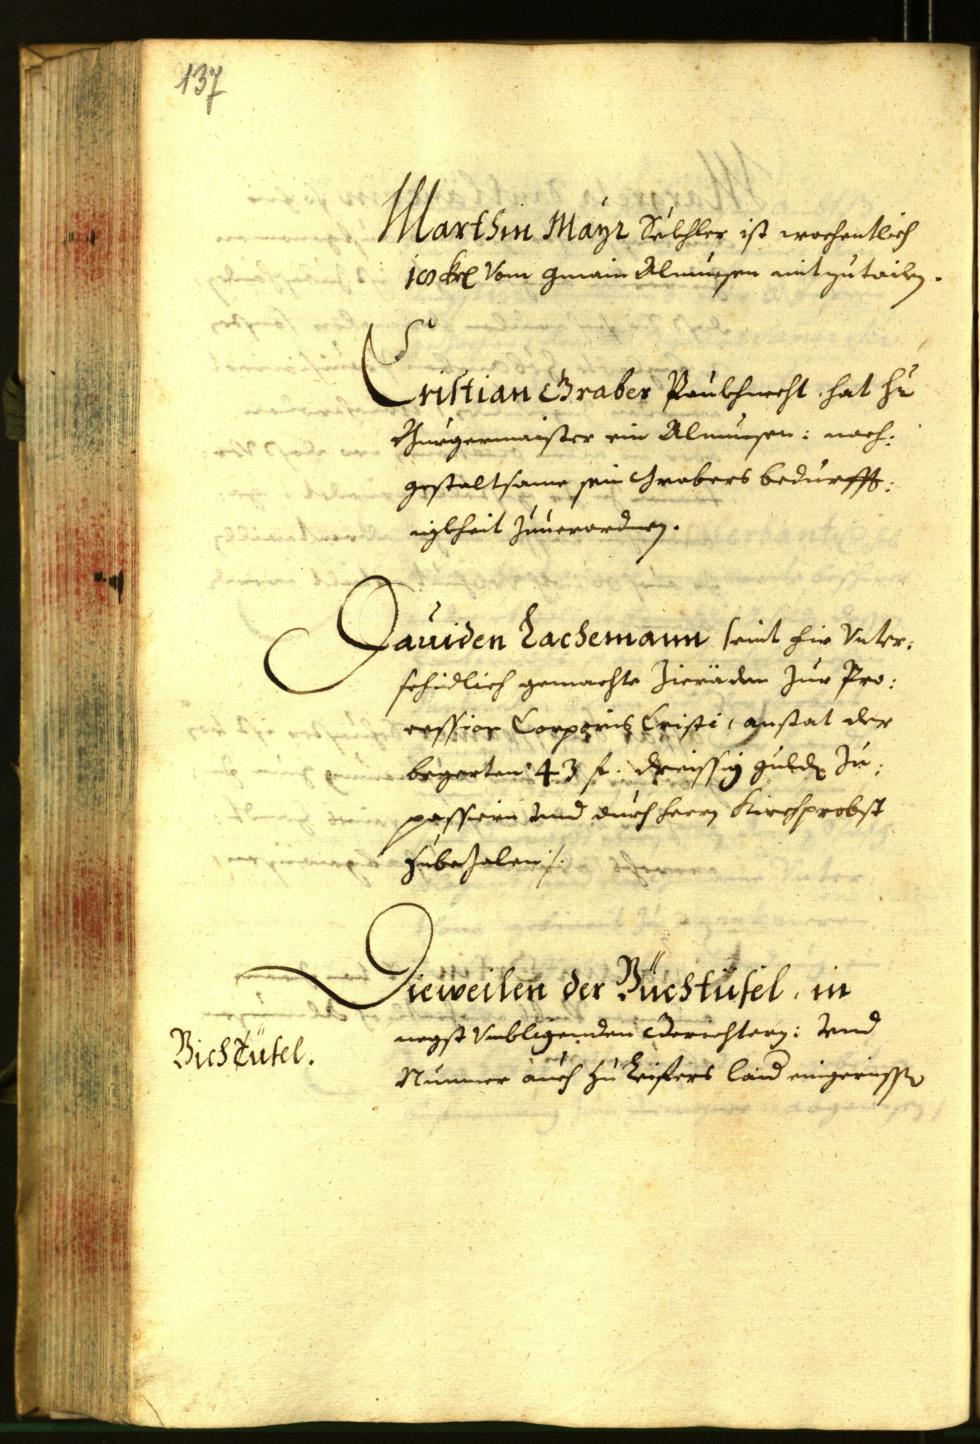 137
Marthin Mayr Sälchler ist wochentlich
18 kr vom gmain Almuesen mitzutailn.
Cristian Graber Paukhnecht hat Hr
Burgermaister ein Almuesen: nach:
gestaltsame sein Grabers bedurfft:
nigkheit zuuerordnen.
Dauiden Lachemann seint hie Vnter:
schidlich gemachte Zieräden zur Pro:
cession Corporis Cristi, anstat der
begerten 43 f. dreissig guldn zu:
passiern vnd durch herrn Kirchprobst
zubezalen /.
Dieweilen der Viechstüfel, in
negst vmbligenden Gerichtern: vnd
Nummer auch zu Leifers laid eingerissen
Viechstüfel.